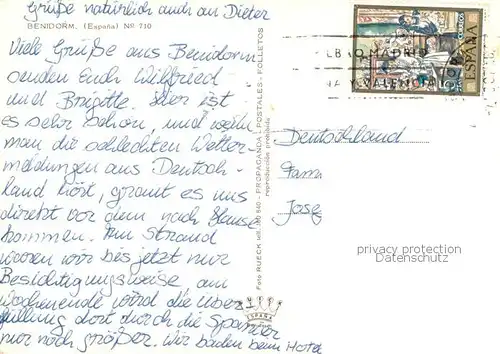 Grüße natürlich auch an Dieter
BENIDORM. (España) Nº 710
Viele Grüße aus Benidorm
senden Euch Wilfried
und Brigitte. Hier ist
es sehr schön, und wenn
man die schlechten Wetter-
meldungen aus Deutsch-
land hört, graut es uns
direkt vor dem nach Hause
kommen. Am Strand
waren wir bis jetzt nur
Besichtigungsweise am
Wochenende wird die Über-
füllung dort durch die Spanier
nur noch größer. Wir baden beim Hotel
Foto RUECK PROPAGANDA - POSTALES - FOLLETOS
reproducción prohibida
ESPAÑA
CORREOS
MADRID
VALENCIA
Deutschland
Fam
Josef
privacy protection
Datenschutz
ESPAÑA